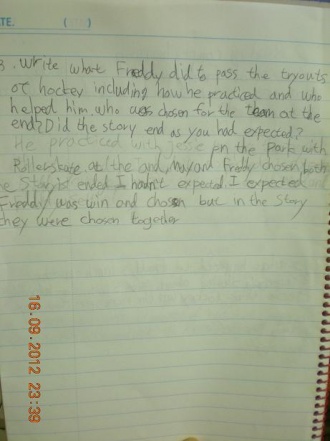 TE. ( )
3. Write what Freddy did to pass the tryouts
of hockey including how he practiced and who
helped him, who was chosen for the team at the
end? Did the story end as you had expected?
He practiced with Jesse in the park with
Rollerskate. at the end, May and Freddy chosen both
The Story ended I hadn't expected. I expected
Freddy was win and chosen but in the story
they were chosen together
16.09.2012 23:39